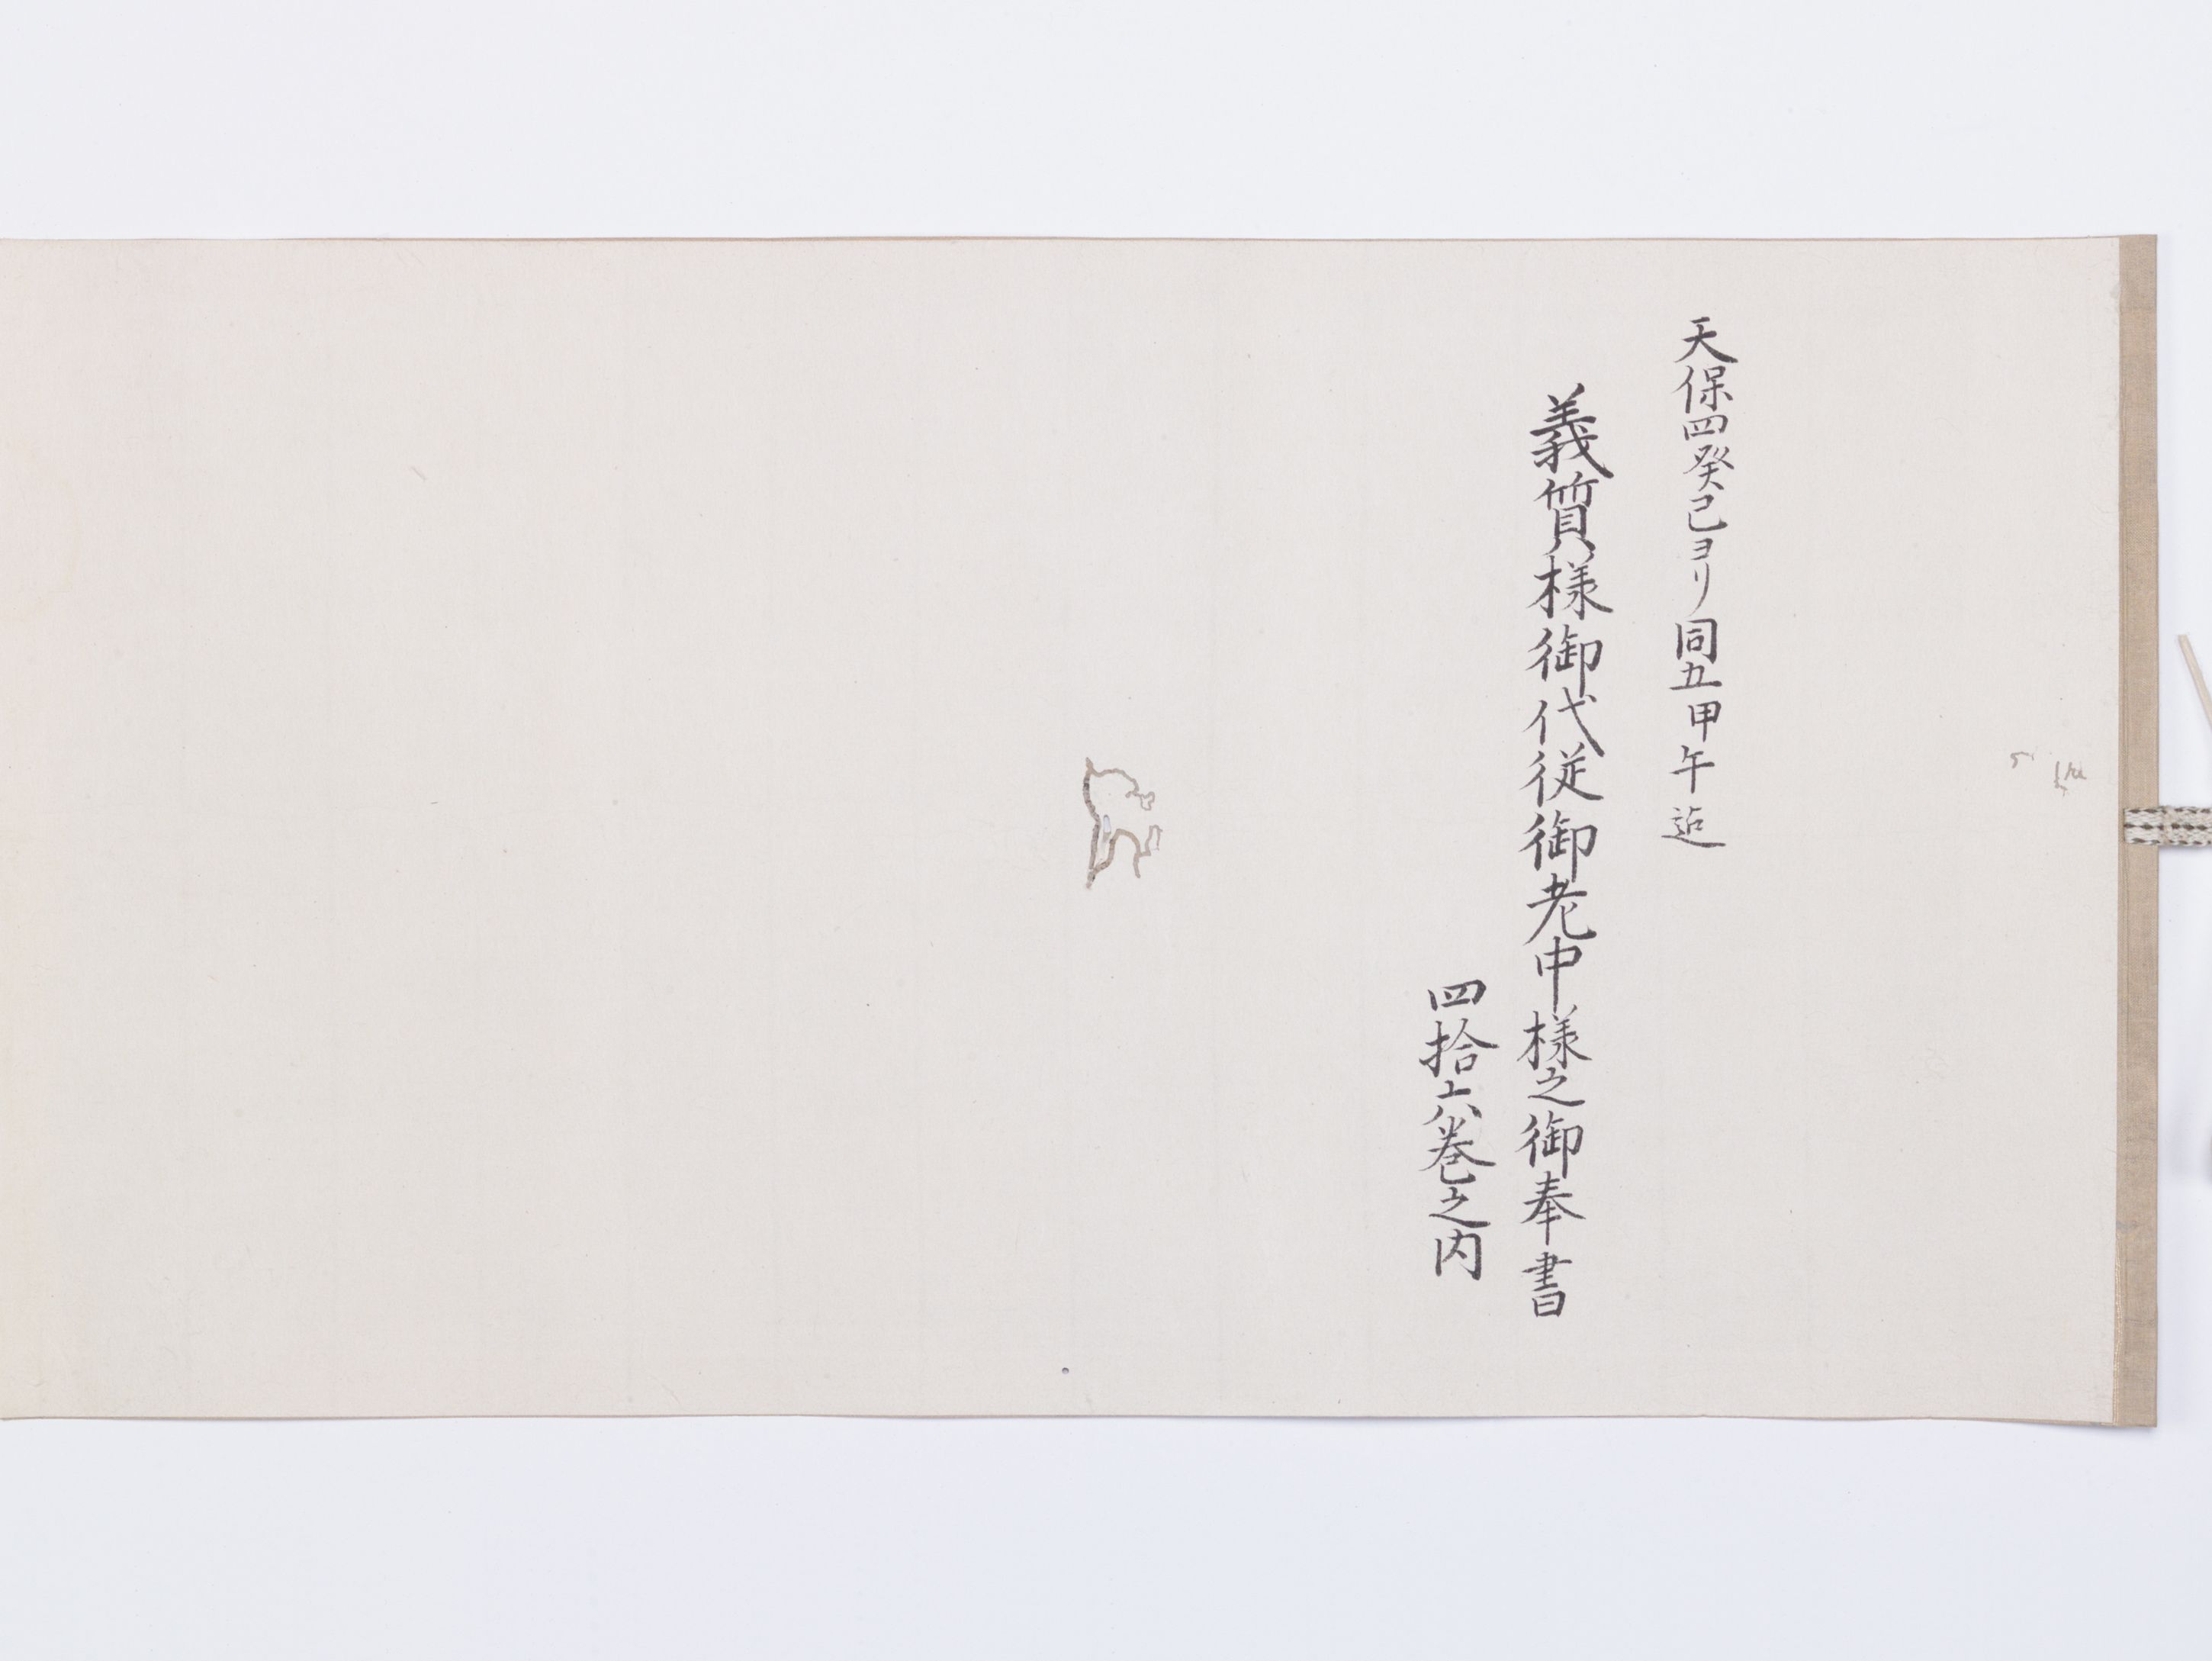 天保四癸巳ヨリ同五甲午迠
義質様御代従御老中様之御奉書
四拾六巻之内